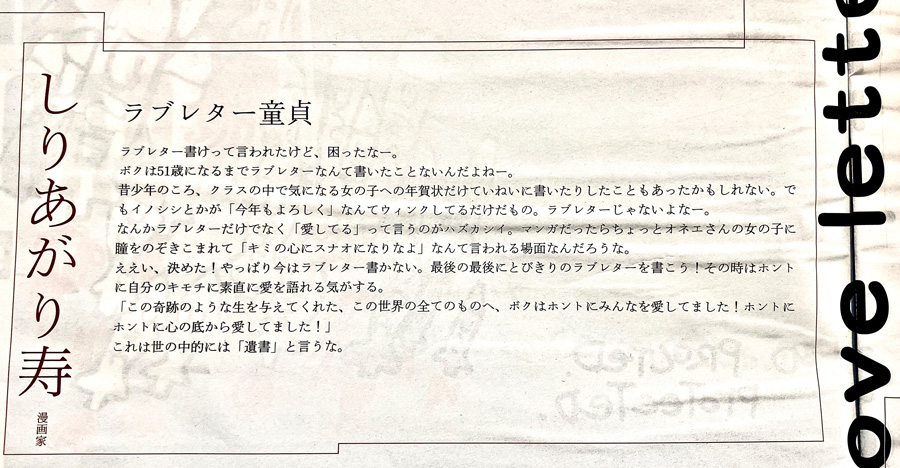 しりあがり寿
漫画家
ラブレター童貞
ラブレター書けって言われたけど、困ったなー。
ボクは51歳になるまでラブレターなんて書いたことないんだよねー。
昔少年のころ、クラスの中で気になる女の子への年賀状だけていねいに書いたりしたこともあったかもしれない。で
もイノシシとかが「今年もよろしく」なんてウィンクしてるだけだもの。ラブレターじゃないよなー。
なんかラブレターだけでなく「愛してる」って言うのがハズカシイ。マンガだったらちょっとオネエさんの女の子に
瞳をのぞきこまれて「キミの心にスナオになりなよ」なんて言われる場面なんだろうな。
ええい、決めた！やっぱり今はラブレター書かない。最後の最後にとびきりのラブレターを書こう！その時はホント
に自分のキモチに素直に愛を語れる気がする。
「この奇跡のような生を与えてくれた、この世界の全てのものへ、ボクはホントにみんなを愛してました！ホントに
ホントに心の底から愛してました！」
これは世の中的には「遺書」と言うな。
ove lette